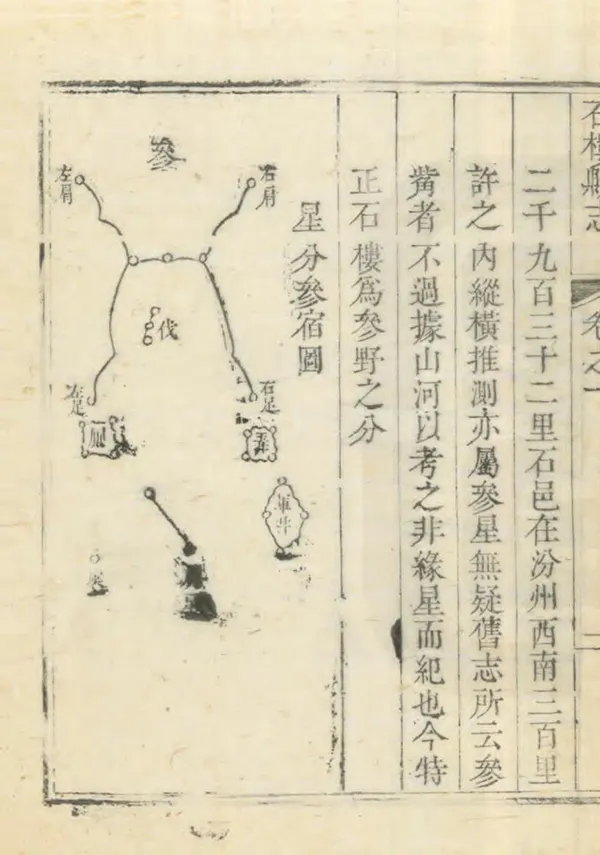 石樓縣志
卷之一
二千九百三十二里石邑在汾州西南三百里
許之內縱橫推測亦屬參星無疑舊志所云參
觜者不過據山河以考之非緣星而紀也今特
正石樓為參野之分
星分參宿圖
參
右肩
左肩
伐
右足
左足
軍井